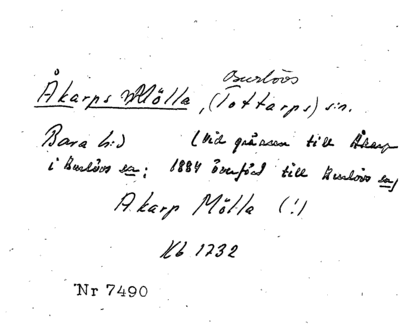 Burlövs
Åkarps Mölla, (Tottarps) sn.
Bara hd (Vid gränsen till Åkarp
i Burlövs sn; 1884 överförd till Burlövs sn)
Akarp Mölla (!)
Kb 1732
Nr 7490